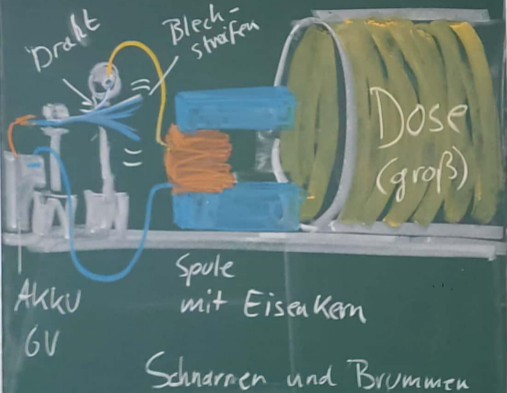 Draht
Blech-
streifen
Dose
(groß)
Akku
6V
Spule
mit Eisenkern
Schnarren und Brummen